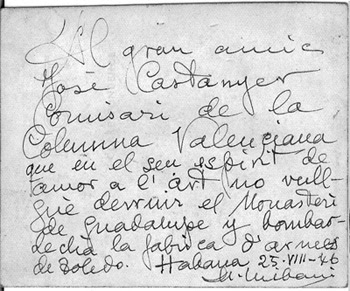 Al gran amic
José Castanyer
Comisari de la
Columna Valenciana
que en el seu espirit de
amor a l'art no vull-
gué derruir el Monasteri
de Guadalupe y bombar-
dechà la fabrica d'armes
de Toledo. Habana 25-VIII-46